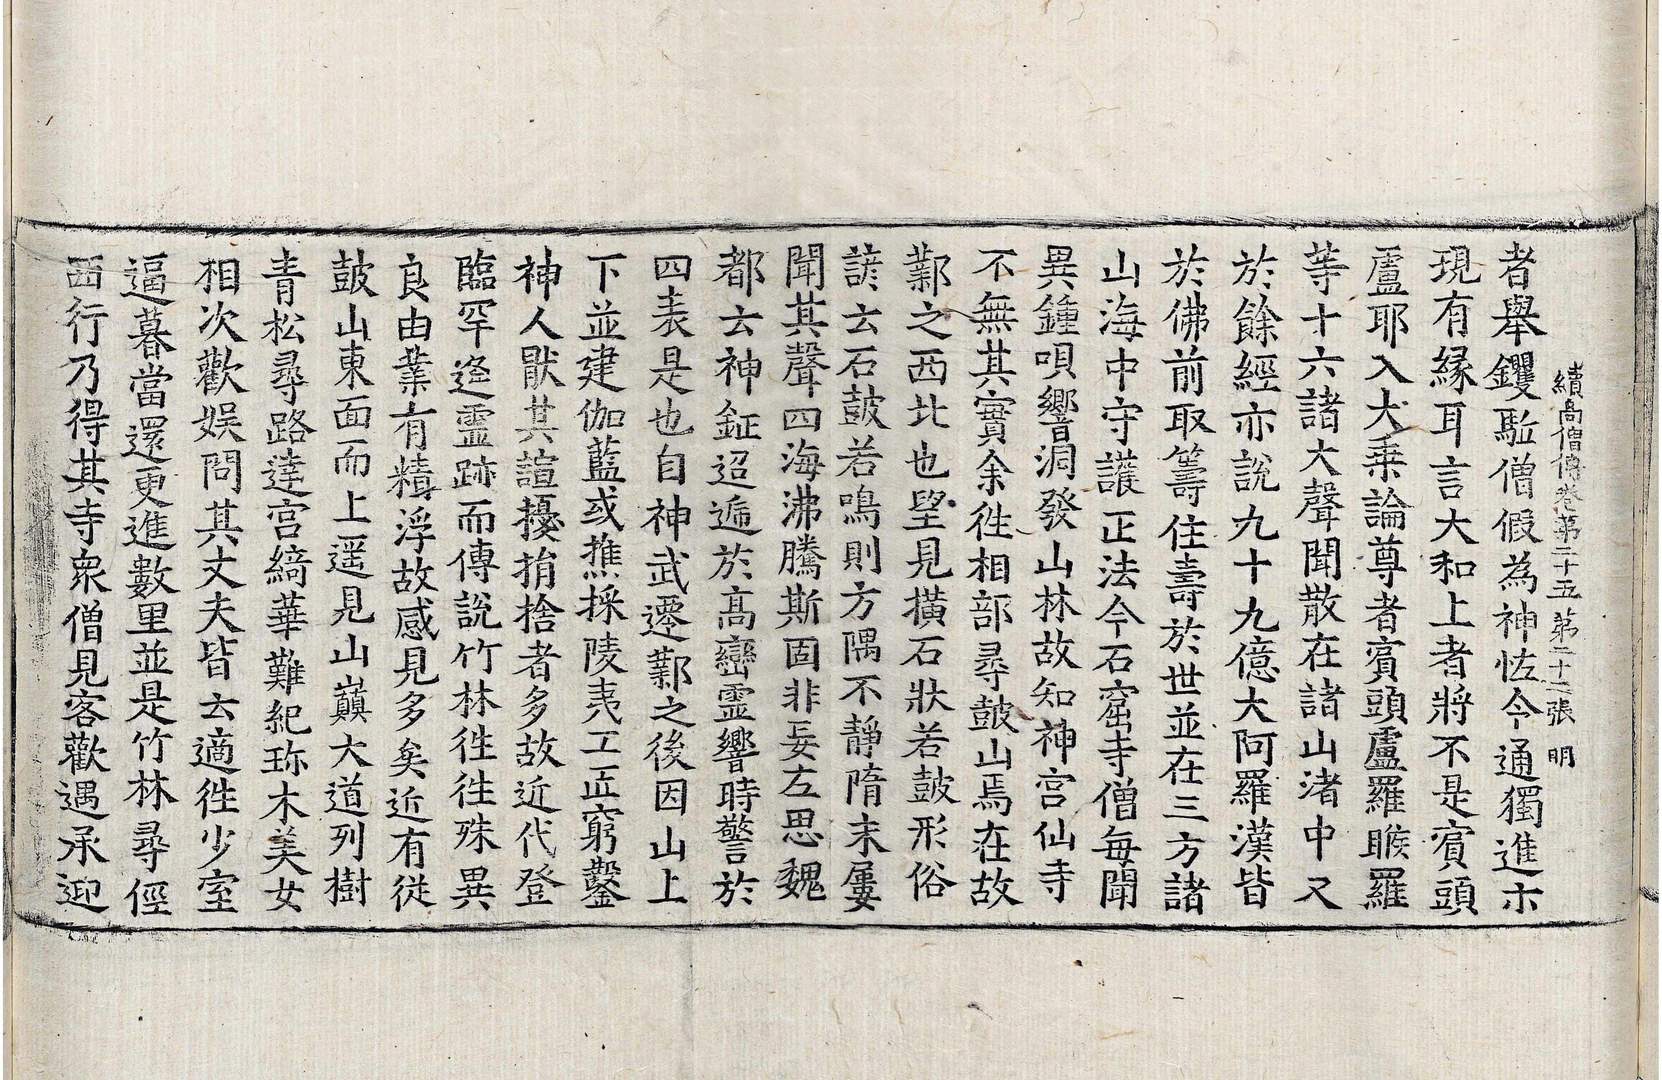 續高僧傳卷第二十五 第二十二張 明
者舉钁駈僧假為神恠今通獨進示
現有縁耳言大和上者將不是賓頭
盧耶入大乗論尊者賓頭盧羅睺羅
等十六諸大聲聞散在諸山渚中又
於餘經亦說九十九億大阿羅漢皆
於佛前取籌住壽於世並在三方諸
山海中守護正法今石窟寺僧每聞
異鍾唄響洞發山林故知神宮仙寺
不無其實余徃相部尋皷山焉在故
鄴之西北也望見橫石狀若皷形俗
諺云石皷若鳴則方隅不靜隋末屢
聞其聲四海沸騰斯固非妄左思魏
都云神鉦迢遞於高巒靈響時警於
四表是也自神武遷鄴之後因山上
下並建伽藍或樵採陵夷工匠窮鑿
神人猒其諠擾捐捨者多故近代登
臨罕逢靈跡而傳說竹林徃徃殊異
良由業有精浮故感見多矣近有從
皷山東面而上遥見山巔大道列樹
青松尋路達宮綺華難紀珎木美女
相次歡娱問其丈夫皆云適徃少室
逼暮當還更進數里並是竹林尋徑
西行乃得其寺衆僧見客歡遇承迎